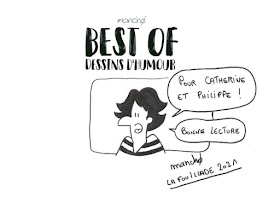 manché
BEST OF
DESSINS D'HUMOUR
POUR CATHERINE
ET PHILIPPE !
BONNE LECTURE
manché
LA FOUILLADE 2021